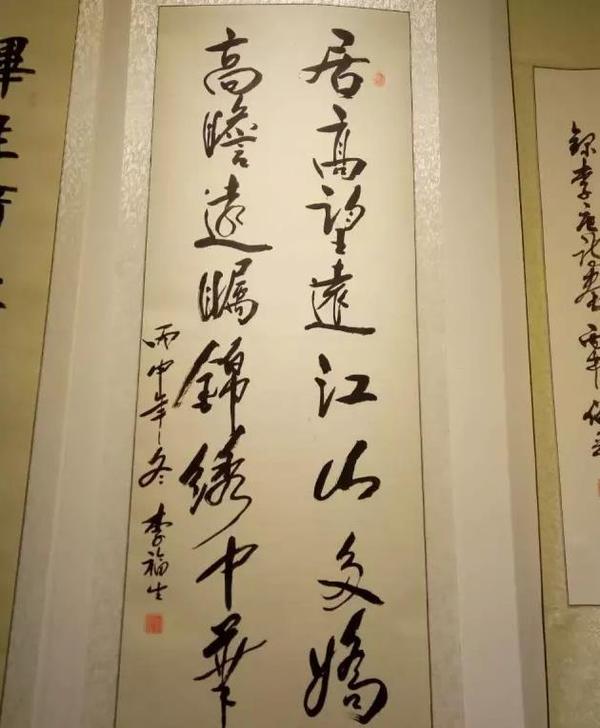 居高望遠江山多嬌
高瞻遠瞩錦綉中華
丙申年冬 李福生